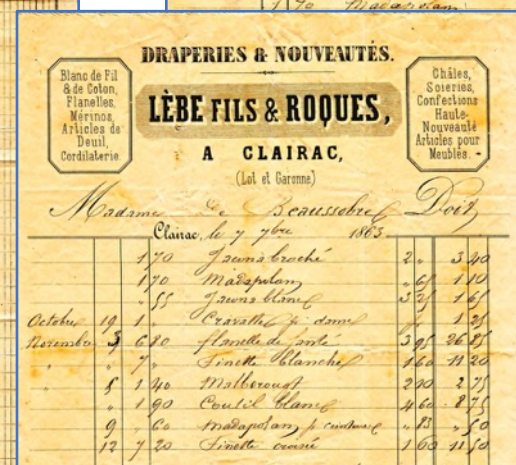 1 70 Madapolam
DRAPERIES & NOUVEAUTÉS.
Blanc de Fil
& de Coton,
Flanelles,
Mérinos,
Articles de
Deuil,
Cordilaterie.
LÈBE FILS & ROQUES,
A CLAIRAC,
(Lot et Garonne)
Châles,
Soieries,
Confections
Haute-
Nouveauté
Articles pour
Meubles.
Madame De Beaussobre Doit
Clairac, le 7 7bre 1863.
1 70 Jacona broché 2 " 3 40
1 70 Madapolam " 65 1 10
" 55 Jacona blanc 3 25 1 65
Octobre 19 1 Cravatte pr dame 1 25
Novembre 3 6 80 flanelle de santé 3 95 26 85
" " 7 " Finette blanche 1 60 11 20
" 5 1 40 2 75
" 1 90 Coutil blanc 4 60 8 75
9 " 60 Madapolam p ceinture " 83 " 50
12 7 20 Finette croisée 1 60 11 50